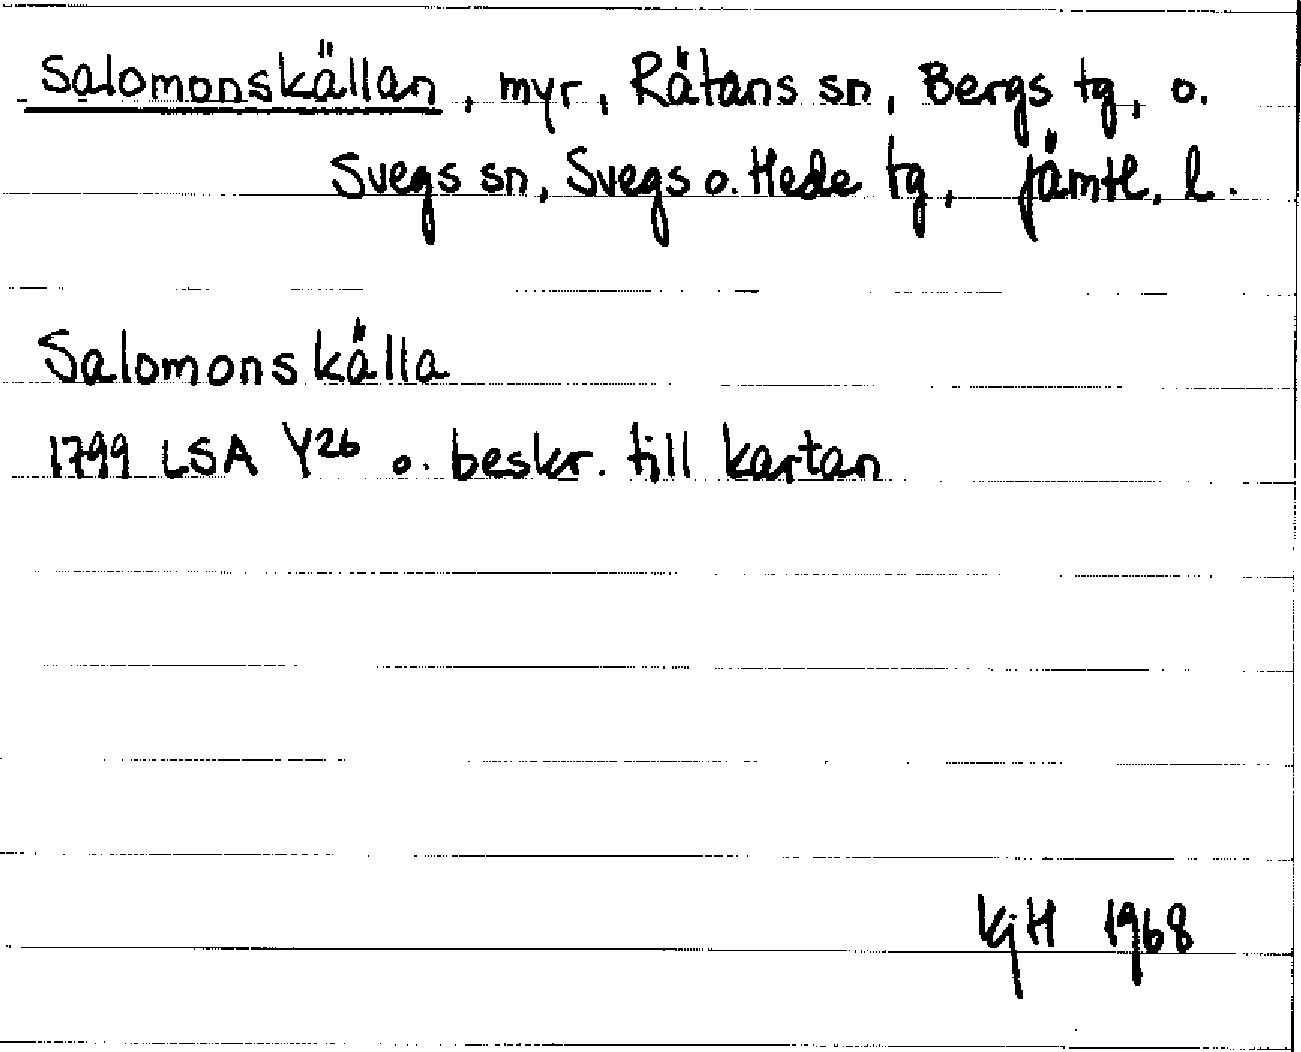 Salomonskällan, myr, Rätans sn, Bergs tg, o.
Svegs sn, Svegs o. Hede tg, Jämtl. l.
Salomonskälla
1799 LSA Y26 o. beskr. till kartan
KjH 1968